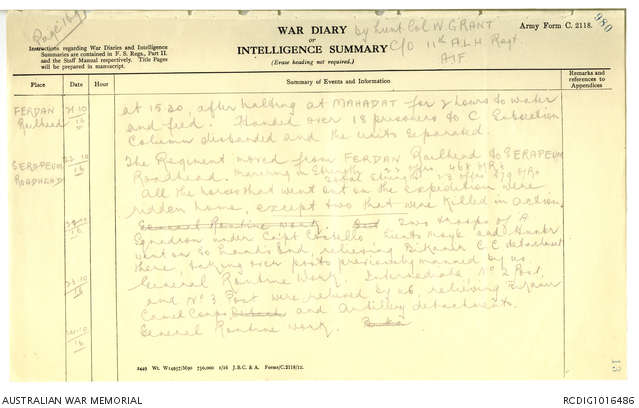 Page 169
WAR DIARY
or
INTELLIGENCE SUMMARY
(Erase heading not required.)
by Lieut Col W. GRANT
C/O 11th A.L.H Regt.
AIF
Army Form C. 2118.
980
Instructions regarding War Diaries and Intelligence
Summaries are contained in F. S. Regs., Part II.
and the Staff Manual respectively. Title Pages
will be prepared in manuscript.
Place
Date
Hour
Summary of Events and Information
Remarks and
references to
Appendices
FERDAN
Railhead
21.10
16
at 1530, after halting at MAHADAT for 2 hours to water
and feed. Handed over 18 prisoners to C Subsection
Column disbanded and the units separated.
SERAPEUM
ROADHEAD
16
The Regiment moved from FERDAN Railhead to SERAPEUM
Roadhead.
All the horses that went out on the expedition were
ridden home, except two that were killed in action.
16
General Routine work. two troops of A
Squadron under Capt Costello, Lieuts and
went on to relieving Bikanir C C detachment
there, taking over posts previously manned by us
16
General Routine Work. Intermediate, No 2 Post,
and No 3 Post were relieved by us, relieving Bikanir
Camel Corps and Artillery detachments.
16
General Routine work.
2449 Wt. W14957/M90 750,000 1/16 J.B.C. & A. Forms/C.2118/12.
13
AUSTRALIAN WAR MEMORIAL
RCDIG1016486